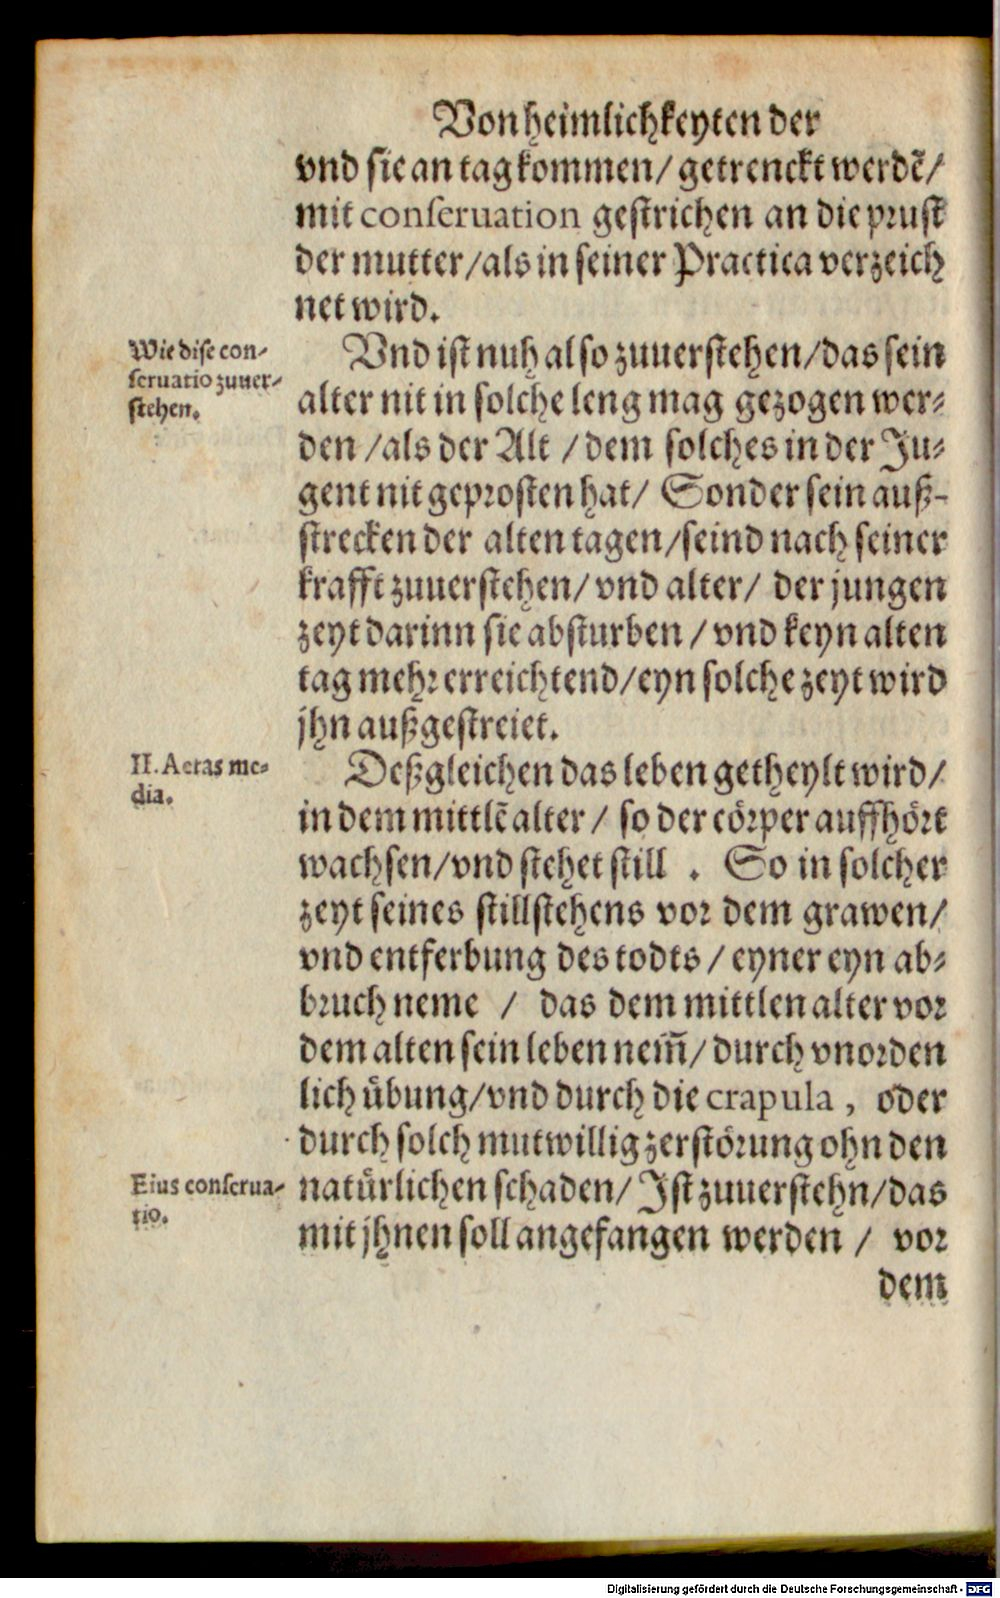 Von heimlichkeyten der
vnd sie an tag kommen/ getrenckt werdẽ/
mit conseruation gestrichen an die prust
der mutter/als in seiner Practica verzeich
net wird.
Wie dise con-
seruatio zuuer-
stehen.
Vnd ist nuh also zuuerstehen/das sein
alter nit in solche leng mag gezogen wer-
den /als der Alt /dem solches in der Ju-
gent nit geprosten hat/ Sonder sein auß-
strecken der alten tagen/seind nach seiner
krafft zuuerstehen/vnd alter/ der jungen
zeyt darinn sie absturben /vnd keyn alten
tag mehr erreichtend/eyn solche zeyt wird
jhn außgestreiet.
II. Aetas me-
dia.
Deßgleichen das leben getheylt wird/
in dem mittlẽ alter / so der cörper auffhört
wachsen/vnd stehet still . So in solcher
zeyt seines stillstehens vor dem grawen/
vnd entferbung des todts / eyner eyn ab-
bruch neme / das dem mittlen alter vor
dem alten sein leben nem̃/ durch vnorden
lich übung/vnd durch die crapula, oder
durch solch mutwillig zerstörung ohn den
Eius conserua-
tio.
natürlichen schaden/ Ist zuuerstehn/das
mit jhnen soll angefangen werden / vor
dem
Digitalisierung gefördert durch die Deutsche Forschungsgemeinschaft - DFG